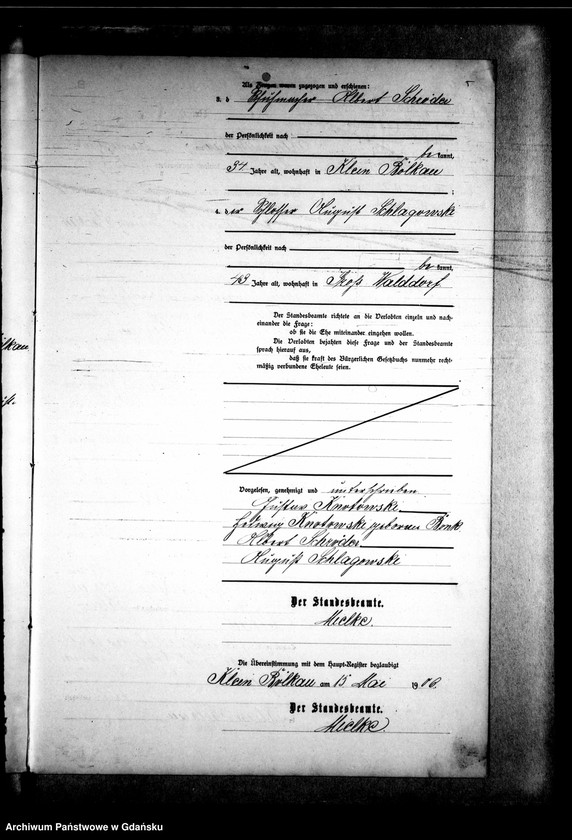 Als Zeugen waren zugezogen und erschienen:
Schuhmacher Albert Schröder
der Persönlichkeit nach
be kannt,
34 Jahre alt, wohnhaft in Klein Bölkau
;
4. der Schlosser August Schlagowski
der Persönlichkeit nach
be kannt,
43 Jahre alt, wohnhaft in Groß Walddorf
Der Standesbeamte richtete an die Verlobten einzeln und nach-
einander die Frage:
ob sie die Ehe miteinander eingehen wollen.
Die Verlobten bejahten diese Frage und der Standesbeamte
sprach hierauf aus,
daß sie kraft des Bürgerlichen Gesetzbuchs nunmehr recht-
mäßig verbundene Eheleute seien.
Vorgelesen, genehmigt und unterschrieben
Gustav Knotowski
Hedwig Knotowski geborene Benk
Albert Schröder
August Schlagowski
Der Standesbeamte.
Mielke.
Die Übereinstimmung mit dem Haupt-Register beglaubigt
Klein Bölkau am 15 Mai 1906.
Der Standesbeamte.
Mielke.
Archiwum Państwowe w Gdańsku